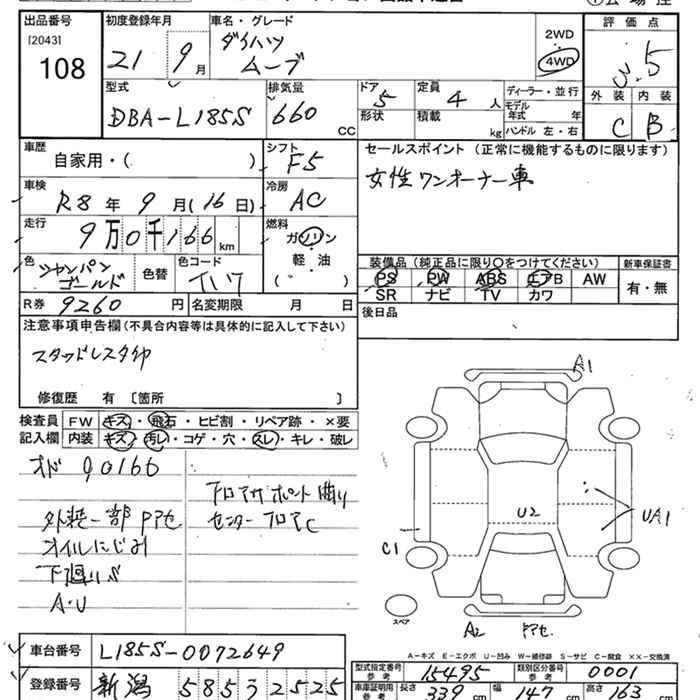 出品番号
[2043]
108
初度登録年月
21年 9月
車名・グレード
ダイハツ
ムーブ
2WD
4WD
評価点
3.5
外装 内装
C B
型式
DBA-L185S
排気量
660 CC
ドア 5
形状
定員 4人
積載 kg
ディーラー・並行
モデル年式 年
ハンドル 左・右
車歴
自家用・( )
シフト F5
セールスポイント (正常に機能するものに限ります)
女性ワンオーナー車
車検
R8年 9月(16日)
冷房 AC
走行
9万0千166km
燃料
ガソリン
軽油
( )
色
シャンパンゴールド
色替
色コード
T17
装備品 (純正品に限り○をつけてください)
PS PW ABS エアB AW
SR ナビ TV カワ
新車保証書
有・無
R券 9260円
名変期限 月 日
後日品
注意事項申告欄(不具合内容等は具体的に記入して下さい)
スタッドレスタイヤ
修復歴 有 〔箇所 〕
検査員記入欄
FW キズ・飛石・ヒビ割・リペア跡・×要
内装 キズ・汚レ・コゲ・穴・スレ・キレ・破レ
オド 90166
外装一部Pアセ
オイルにじみ
下廻りS
A・U
フロアサポート曲り
センターフロアC
A1
U2
UA1
C1
A2 Pアセ
スペア
A-キズ E-エクボ U-凹み W-補修跡 S-サビ C-腐食 XX-交換済
車台番号 L185S-0072649
登録番号 新潟 585 う 2525
型式指定番号 参考 15495
類別区分番号 参考 0001
車庫証明用 参考
長さ 339cm 幅 147cm 高さ 163cm